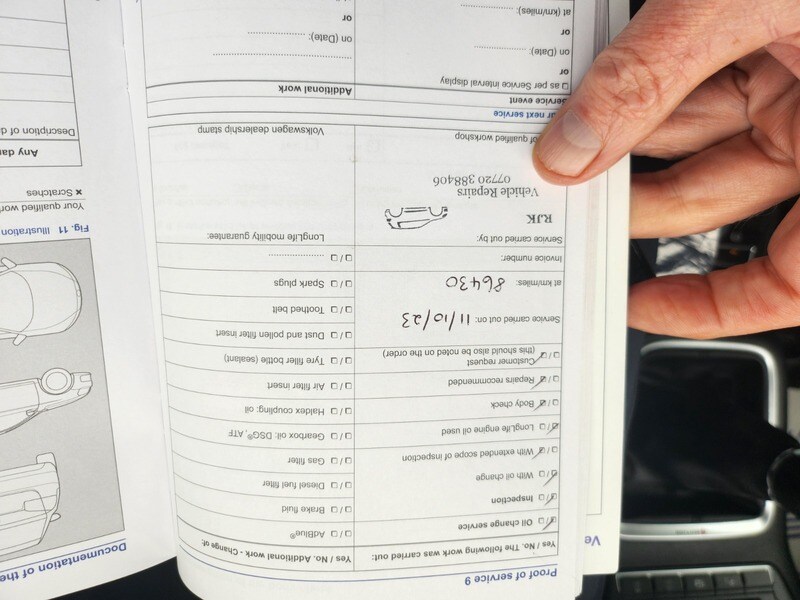 Proof of service 9
Yes / No. The following work was carried out:
Oil change service
Inspection
With oil change
With extended scope of inspection
LongLife engine oil used
Body check
Repairs recommended
Customer request
(this should also be noted on the order)
Service carried out: on: 11/10/23
at km/miles: 86430
Invoice number:
Service carried out by:
RJK
Vehicle Repairs
07720 388406
of qualified workshop
Yes / No. Additional work - Change of:
AdBlue®
Brake fluid
Diesel fuel filter
Gas filter
Gearbox oil: DSG®, ATF
Haldex coupling: oil
Air filter insert
Tyre filler bottle (sealant)
Dust and pollen filter insert
Toothed belt
Spark plugs
LongLife mobility guarantee:
Volkswagen dealership stamp
ur next service
Service event
as per Service interval display
or
on (Date):
or
at km/miles):
Additional work
on (Date):
or
Documentation of the
Fig. 11 Illustration
Your qualified wor
× Scratches
Any dam
Description of d
Ve